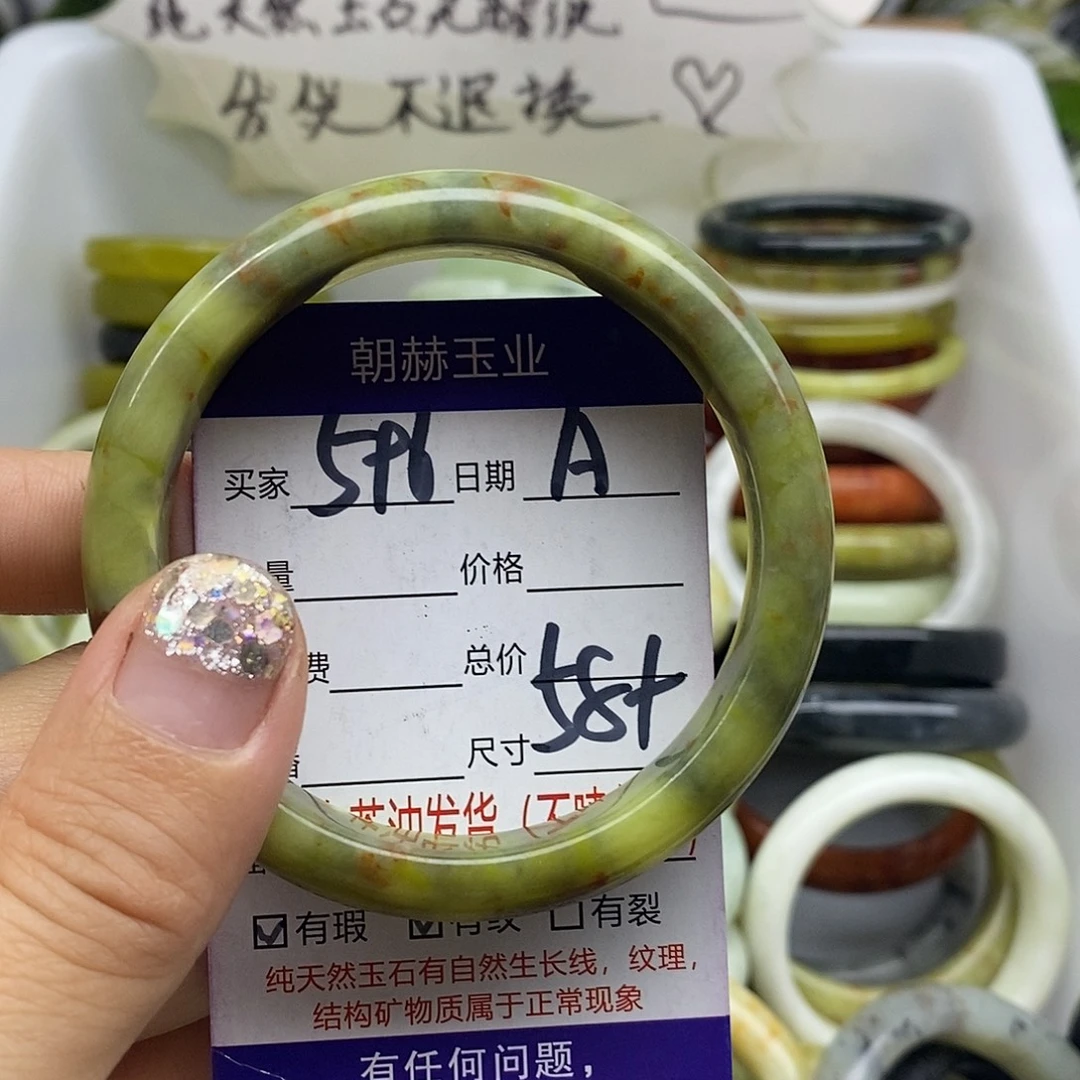 纯天然玉石无酸洗
售货不退换
朝赫玉业
买家 596 日期 A
量 价格
费 总价
尺寸 58+
茶油发货（不
有瑕 有纹 有裂
纯天然玉石有自然生长线，纹理，
结构矿物质属于正常现象
有任何问题，